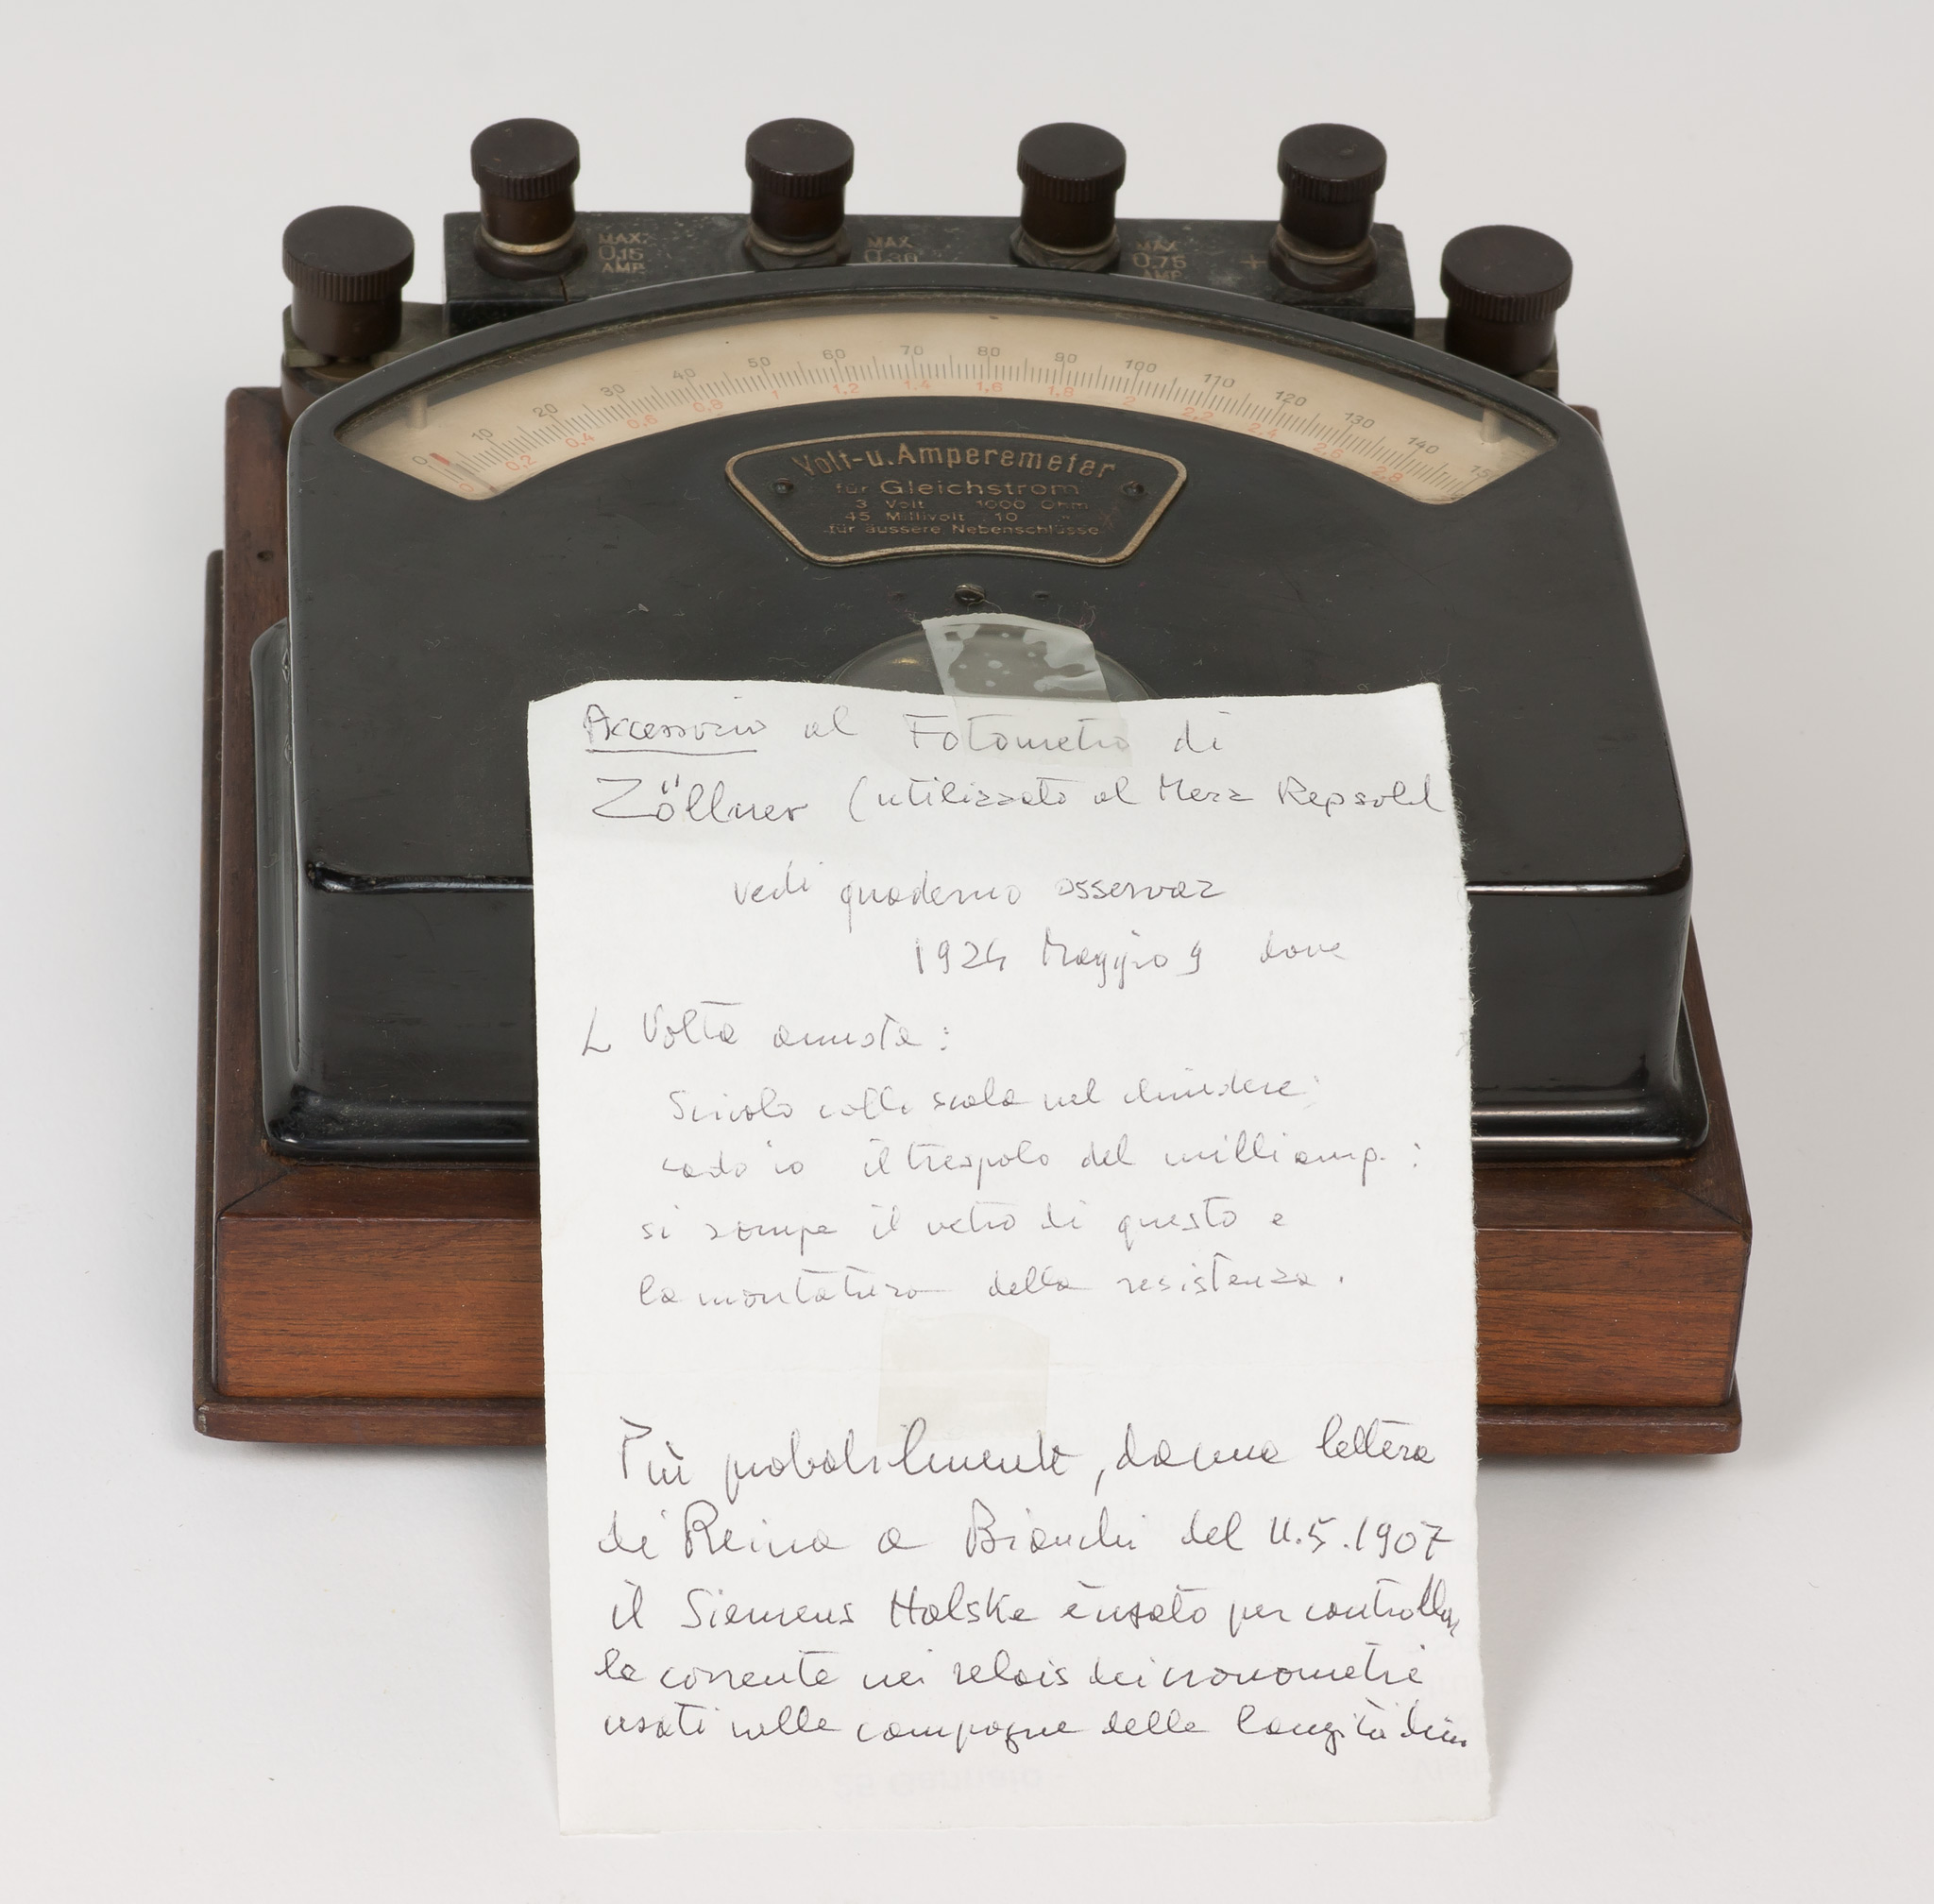 MAX. 0,15 AMP.
MAX. 0,30
MAX. 0,75 AMP.
+
0 10 20 30 40 50 60 70 80 90 100 110 120 130 140 150
0 0,2 0,4 0,6 0,8 1 1,2 1,4 1,6 1,8 2 2,2 2,4 2,6 2,8
Volt-u. Amperemeter
für Gleichstrom
3 Volt 1000 Ohm
45 Millivolt 10 "
für äussere Nebenschlüsse
Accessorio al Fotometro di
Zöllner (utilizzato al Merz Repsold
vedi quaderno osservaz
1924 Maggio 9 dove
L. Volta annota:
Scivolo colla scala nel chiudere;
cado io il trespolo del milliamp. :
si rompe il vetro di questo e
la montatura della resistenza.
Più probabilmente, da una lettera
di Reina a Bianchi del 11.5.1907
il Siemens Halske è usato per controllar
la corrente nei relais dei cronometri
usati nelle campagne delle longitudini